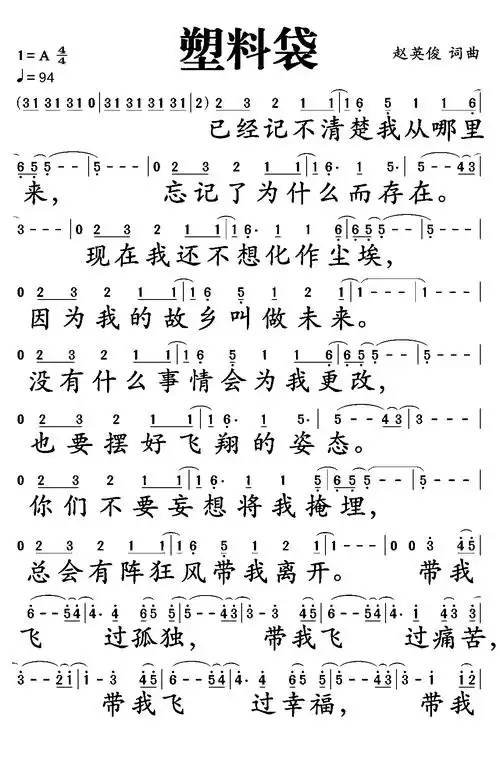 塑料袋
1=A 4/4
赵英俊 词曲
♩=94
(31 31 31 0 | 31 31 31 31 | 2) 2 3 2 1 1 | 1 6 5 1 1 6 |
已经记不清楚我从哪里
6 5 5 5 - - - | 0 2 3 2 1 1 | 1 6· 1 6· | 5 - - 4 3 |
来， 忘记了为什么而存在。
3 - - - | 0 2 3 2 1 1 | 1 6· 1 1 6 | 6 5 5 5 - - | 5 - - - |
现在我还不想化作尘埃，
0 2 3 2 1 1 | 1 6 5 1 2 1 | 1 - - - | 1 - - - |
因为我的故乡叫做未来。
0 2 3 2 1 1 | 1 6 5 1 1 6 | 6 5 5 5 - - | 5 - - - |
没有什么事情会为我更改，
0 2 3 2 1 1 | 1 6· 1 5· | 5 - - 4 3 | 3 - - - |
也要摆好飞翔的姿态。
0 2 3 2 1 1 | 1 6· 1 1 5 | 6 5 5 - - | 5 - - - |
你们不要妄想将我掩埋，
0 2 3 2 1 1 | 1 6 5 1 2 1 | 1 - - - | 0 0 3 4 5 |
总会有阵狂风带我离开。 带我
6 - - 5 4 | 4· 4 6 5 5 | 5 - - 4 3 | 3· 3 4 5 | 6 - - 5 4 | 4· 4 6 5 4 3 |
飞 过孤独， 带我飞 过痛苦，
3 - - 2 1 | 1 - 3 4 5 | 6 - - 5 4 | 4· 4 6 5 5 | 5 - - 4 3 | 3· 3 4 5 |
带我飞 过幸福， 带我